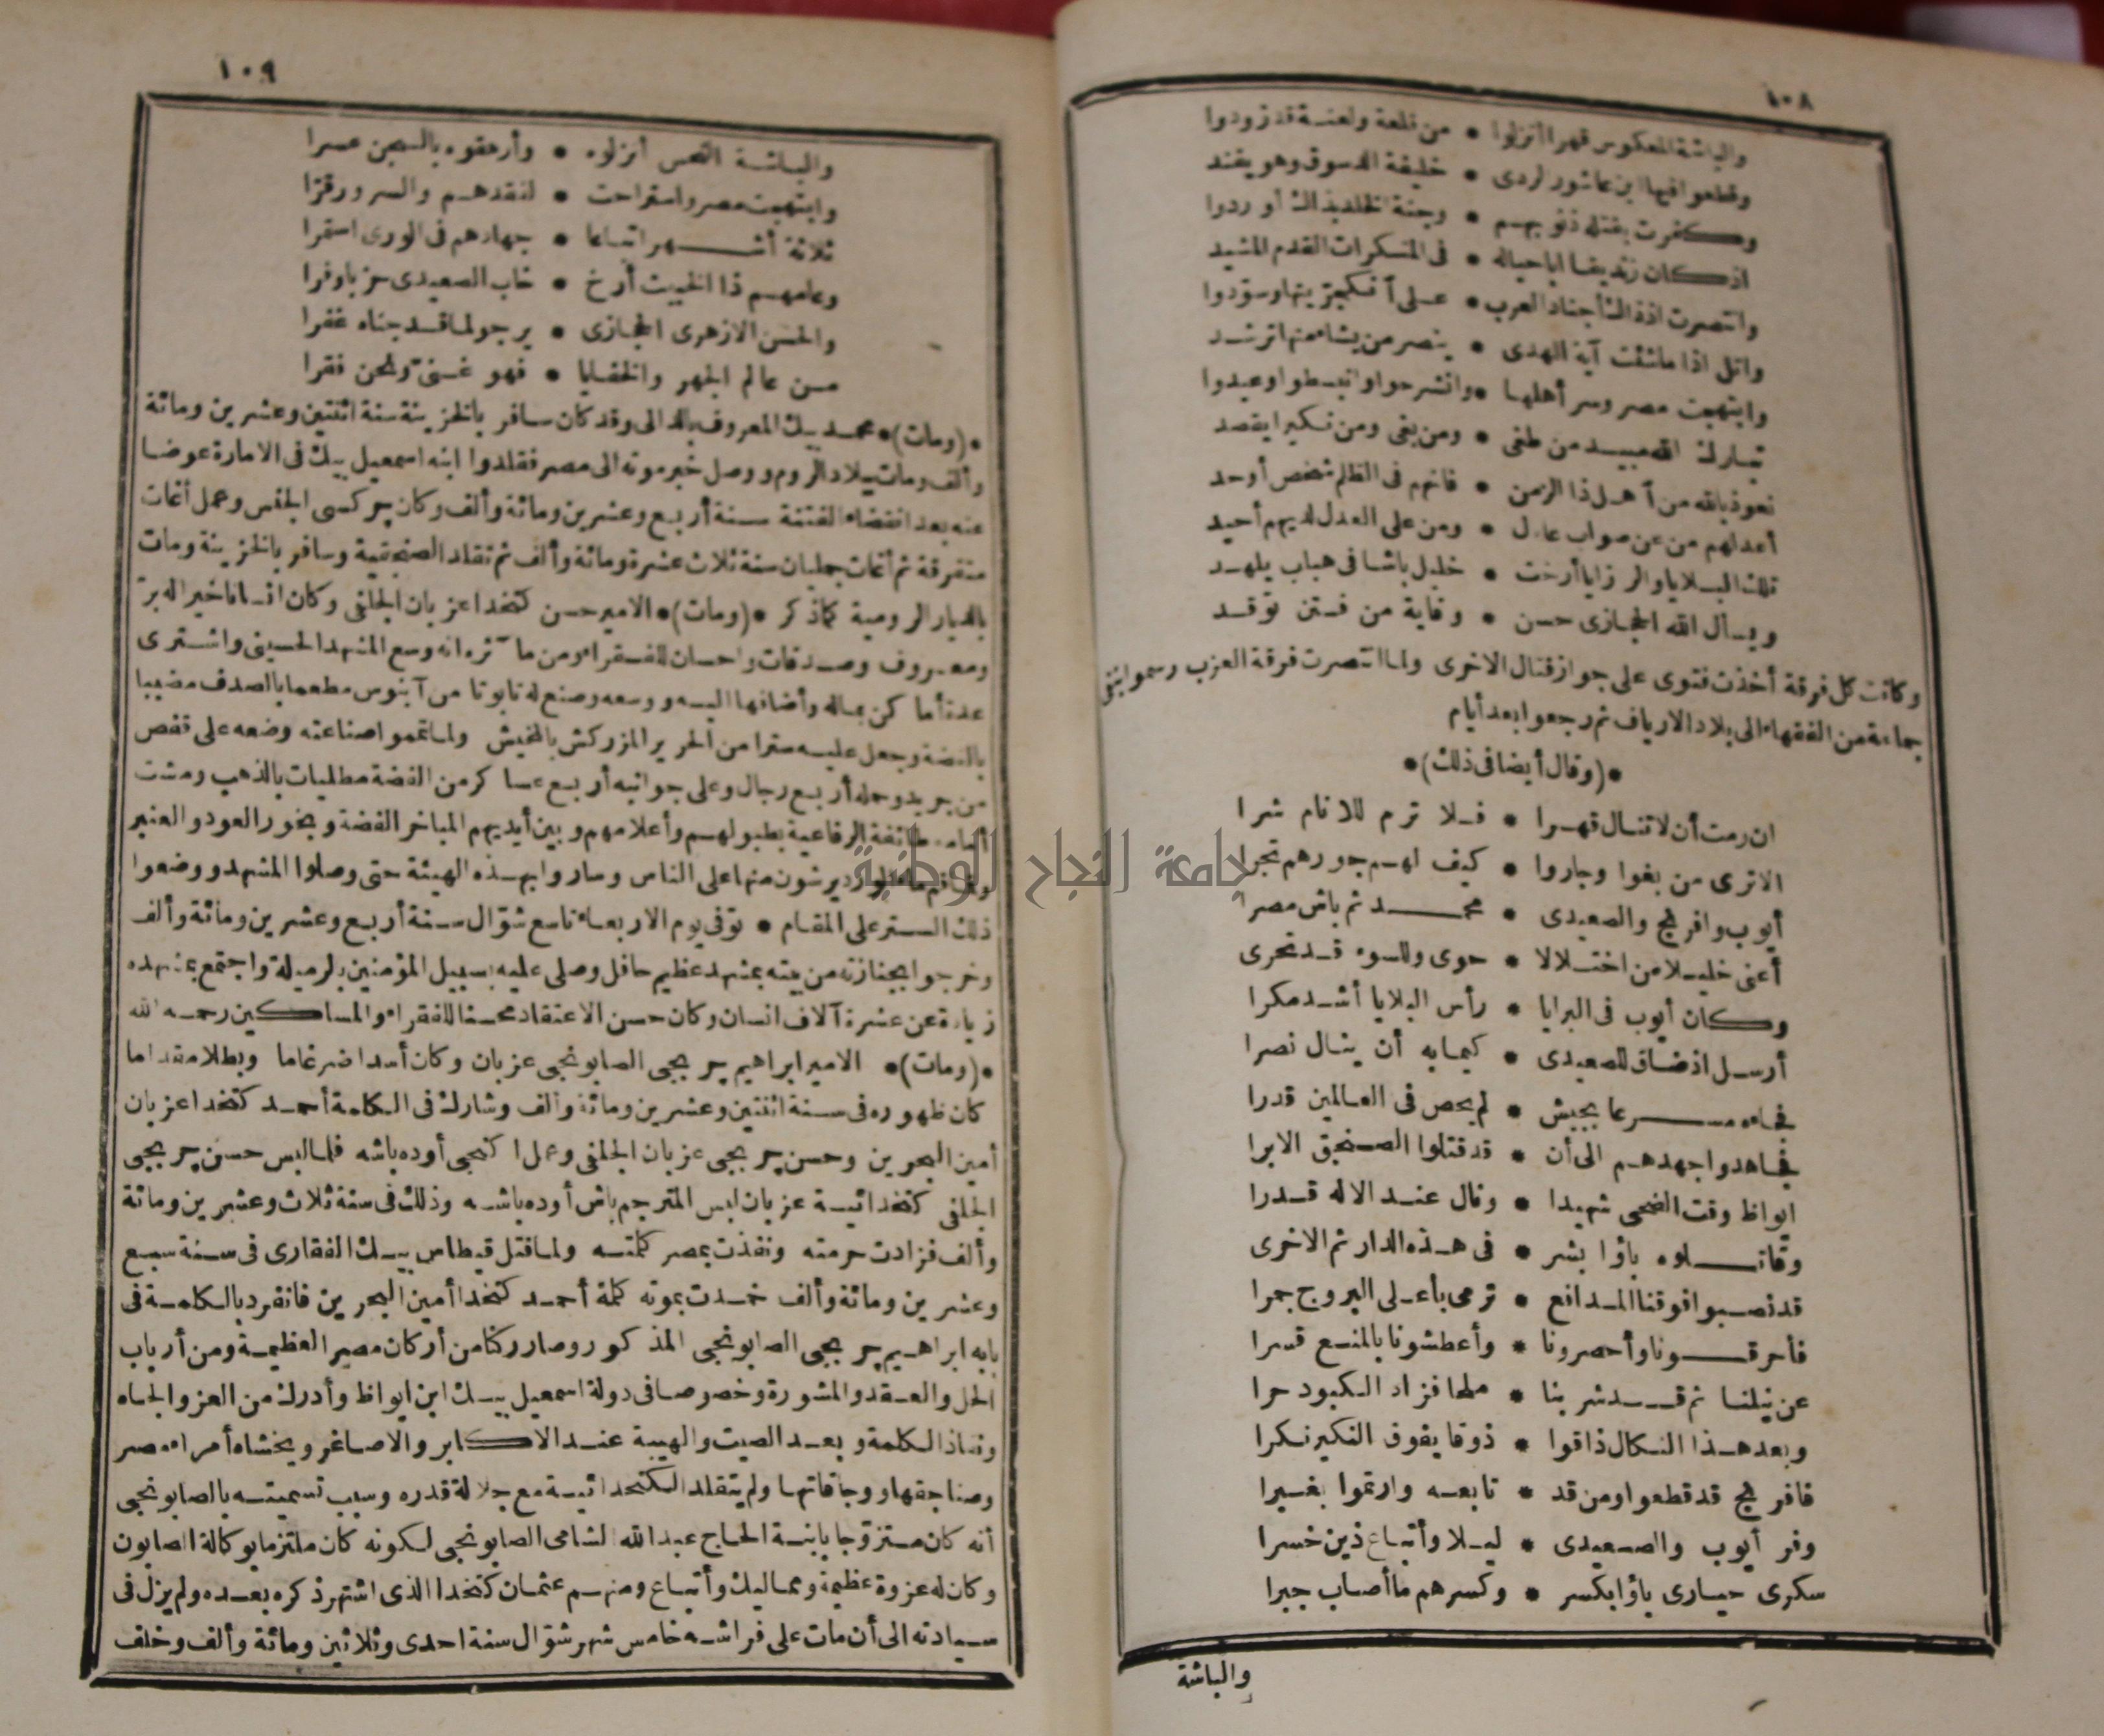 ١٠٨
والباشة المعكوس قهرا أنزلوا * من قلعة ولعنة قد زودوا
وقطعوا فيها ابن عاشور لردى * خليفة الدسوقى وهو يفند
وكفرت بقتله ذنوبهم * وجنة الخلد بذاك أوردوا
اذ كان زنديقا اباحيا له * فى المنكرات القدم المشيد
وانتصرت اذ ذاك أجناد العرب * على
واتل اذا ماشئت آية الهدى * ينصر من يشاء منها ترشد
وابتهجت مصر وسر أهلها * وانشرحوا وانبسطوا وعيدوا
تبارك الله مبيد من طغى * ومن بغى ومن تكبرا يقصد
نعوذ بالله من آهل ذا الزمن * فانهم فى الظلم شخص أوحد
أعدلهم من عن صواب عادل * ومن على العدل لديهم أحيد
تلك البلايا والرزايا أرخت * خليل باشا فى هباب يلهد
ويسأل الله الحجازى حسن * وقاية من فتن توقد
وكانت كل فرقة أخذت فتوى على جواز قتال الاخرى ولما انتصرت فرقة العزب رسموا بنفى
جماعة من الفقهاء الى بلاد الارياف ثم رجعوا بعد أيام
*(وقال أيضا فى ذلك)*
ان رمت أن لا تنال قهرا * فلا ترم للانام شرا
الا ترى من بغوا وجاروا * كيف لهم جورهم تجرا
أيوب وافرنج والصعيدى * محمد ثم باش مصرا
أعنى خليلا من اختلالا * حوى وللسوء قد تحرى
وكان أيوب فى البرايا * رأس البلايا أشد مكرا
أرسل اذ ضاق للصعيدى * كيما به أن ينال نصرا
فجاءه مسرعا بجيش * لم يحص فى العالمين قدرا
فجاهدوا جهدهم الى أن * قد قتلوا الصنجق الابرا
ايواظ وقت الضحى شهيدا * ونال عند الاله قدرا
وقاتلوه باؤا بشر * فى هذه الدار ثم الاخرى
قد نصبوا فوقنا المدافع * ترمى بأعلى البروج جمرا
فأحرقونا وأحصرونا * وأعطشونا بالمنع قسرا
عن نيلنا ثم قد شربنا * ملحا فزاد الكبود حرا
وبعد هذا النكال ذاقوا * ذوقا يفوق النكير نكرا
فافرنج قد قطعوا ومن قد * تابعه وارتموا بغبرا
وفر أيوب والصعيدى * ليلا وأتباع ذين خسرا
سكرى حيارى باؤا بكسر * وكسرهم ما أصاب جبرا
والباشة
١٠٩
والباشة النحس أنزلوه * وأرهقوه بالسجن عسرا
وابتهجت مصر واستراحت * لفقدهم والسرور قرا
ثلاثة أشهر اتباعا * جهادهم فى الورى استمرا
وعامهم ذا الخبيث أرخ * خاب الصعيدى حز باوفرا
والحسن الازهرى الحجازى * يرجو لما قد جناه غفرا
من عالم الجهر والخفايا * فهو غنىّ ونحن فقرا
*(ومات)* محمد بيك المعروف بالدالى وقد كان سافر بالخزينة سنة اثنتين وعشرين ومائة
وألف ومات ببلاد الروم ووصل خبر موته الى مصر فقلدوا ابنه اسمعيل بيك فى الامارة عوضا
عنه بعد انقضاء الفتنة سنة أربع وعشرين ومائة وألف وكان جركسى الجنس وعمل أغات
متفرقة ثم أغات جمليان سنة ثلاث عشرة ومائة وألف ثم تقلد الصنجقية وسافر بالخزينة ومات
بالديار الرومية كما ذكر *(ومات)* الامير حسن كتخدا عزبان الجلفى وكان انسانا خيرا له بر
ومعروف وصدقات واحسان للفقراء ومن مآثره انه وسع المشهد الحسينى واشترى
عدة أماكن بماله وأضافها اليه ووسعه وصنع له تابوتا من آبنوس مطعما بالصدف مضببا
بالفضة وجعل عليه سترا من الحرير المزركش بالمخيش ولما تمموا صناعته وضعه على قفص
من جريد وحمله أربع رجال وعلى جوانبه أربع عساكر من الفضة مطليات بالذهب ومشت
أمامه طائفة الرفاعية بطبولهم وأعلامهم وبين أيديهم المباخر الفضة وبخور العود والعنبر
وقماقم ماء الورد يرشون منها على الناس وساروا بهذه الهيئة حتى وصلوا المشهد ووضعوا
ذلك الستر على المقام * توفى يوم الاربعاء تاسع شوّال سنة أربع وعشرين ومائة وألف
وخرجوا بجنازته من بيته بمشهد عظيم حافل وصلى عليه بسبيل المؤمنين بالرميلة واجتمع بمشهده
زيادة عن عشرة آلاف انسان وكان حسن الاعتقاد محسنا للفقراء والمساكين رحمه الله
*(ومات)* الامير ابراهيم جربجى الصابونجى عزبان وكان أسدا ضرغاما وبطلا مقداما
كان ظهوره فى سنة اثنتين وعشرين ومائة وألف وشارك فى الكلمة أحمد كتخدا عزبان
أمين البحرين وحسن جربجى عزبان الجلفى وعمل اكنجى أوده باشه فلما لبس حسن جربجى
الجلفى كتخدائية عزبان لبس المترجم باش أوده باشه وذلك فى سنة ثلاث وعشرين ومائة
وألف فزادت حرمته ونفذت بمصر كلمته ولما قتل قيطاس بيك الفقارى فى سنة سبع
وعشرين ومائة وألف خمدت بموته كلمة أحمد كتخدا أمين البحرين فانفرد بالكلمة فى
بابه ابراهيم جربجى الصابونجى المذكور وصار ركنا من أركان مصر العظيمة ومن أرباب
الحل والعقد والمشورة وخصوصا فى دولة اسمعيل بيك ابن ايواظ وأدرك من العز والجاه
ونفاذ الكلمة وبعد الصيت والهيبة عند الاكابر والاصاغر ويخشاه أمراء مصر
وصناجقها ووجاقاتها ولم يتقلد الكتخدائية مع جلالة قدره وسبب تسميته بالصابونجى
أنه كان متزوّجا بابنة الحاج عبد الله الشامى الصابونجى لكونه كان ملتزما بوكالة الصابون
وكان له عزوة عظيمة ومماليك وأتباع ومنهم عثمان كتخدا الذى اشتهر ذكره بعده ولم يزل فى
سيادته الى أن مات على فراشه خامس شهر شوّال سنة احدى وثلاثين ومائة وألف وخلف
جامعة النجاح الوطنية